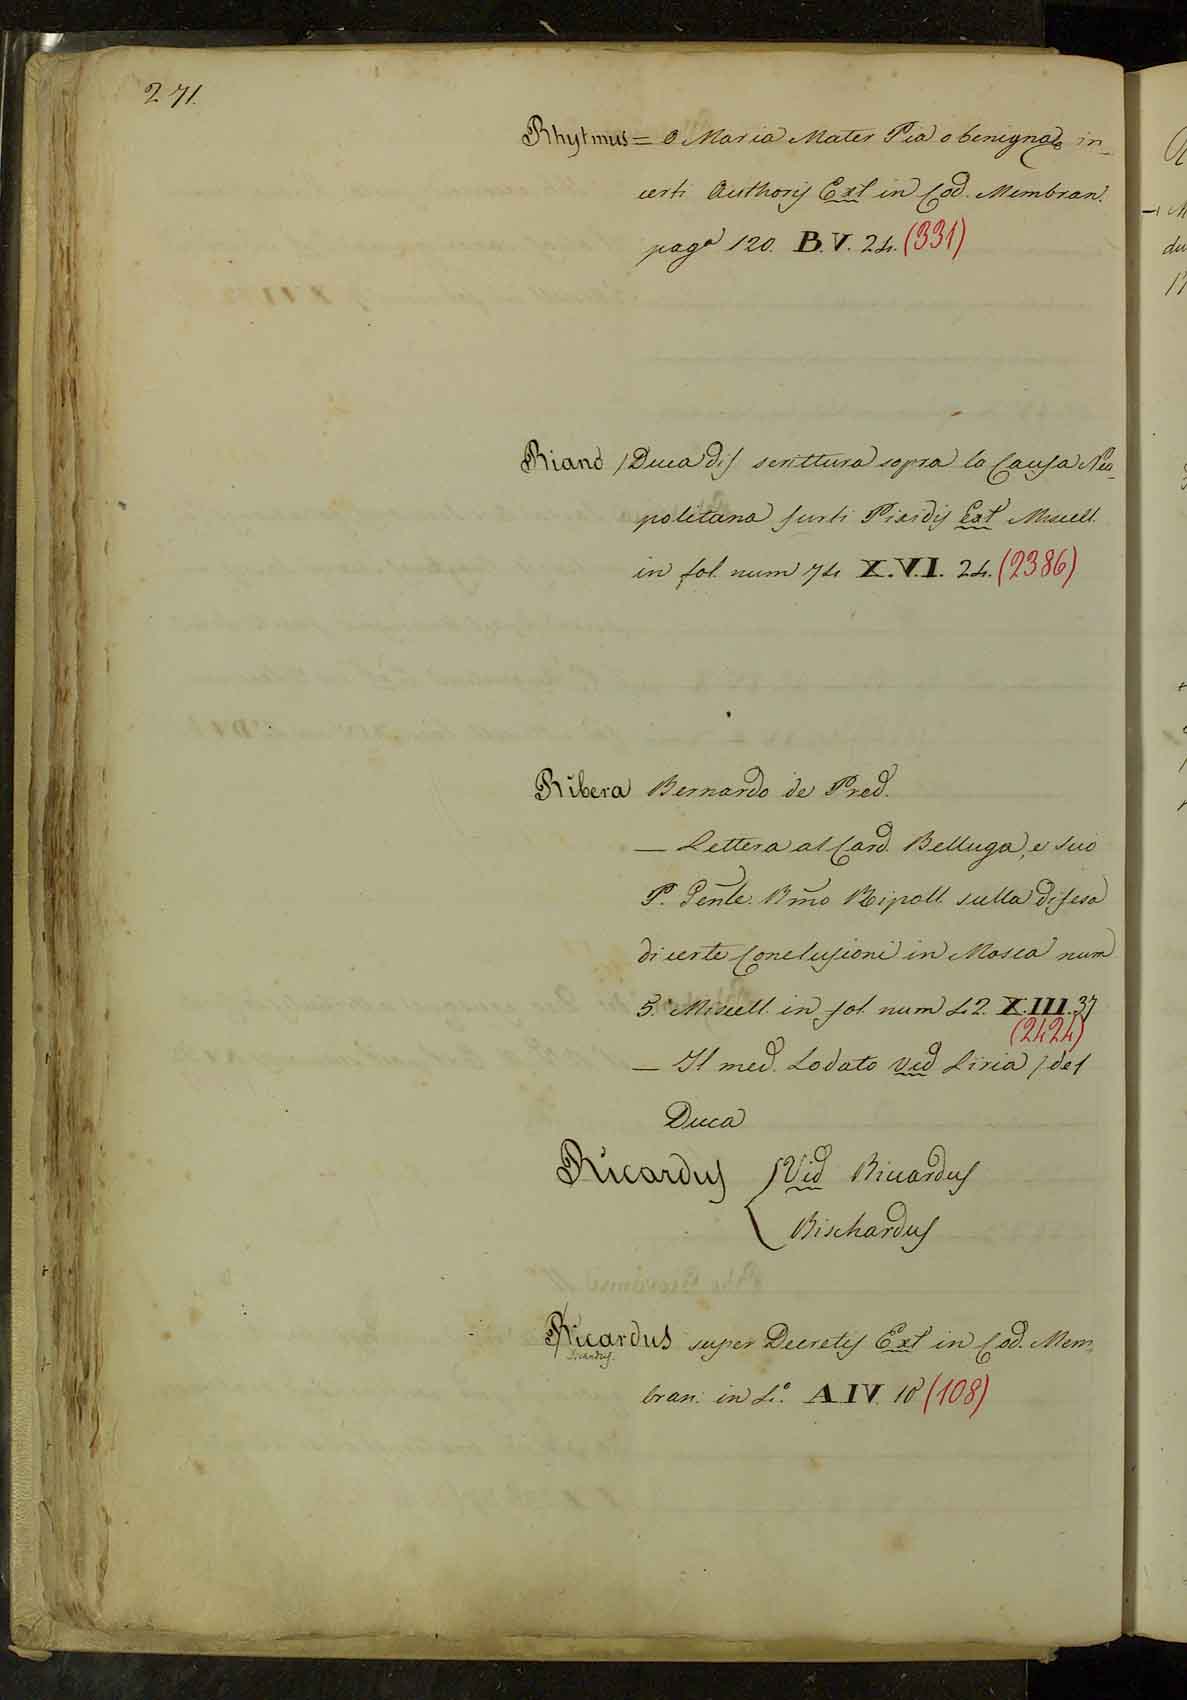 271.
Rhytmus = O Maria Mater Pia o benigna &c in-
certi Authoris Ext in Cod. Membran.
pagᵃ 120. B.V. 24. (331)
Riano (Duca di) scrittura sopra la Causa Nea-
politana furti Picidis Ext Miscell.
in fol. num 74 X.V.I. 24. (2386)
Ribera Bernardo de Pred.
— Lettera al Card. Belluga, e suo
P. Genle. Rmo Ripoll sulla difesa
di certe Conclusioni in Mosca num
5. Miscell. in fol. num 42. X.III.37
(2424)
— Il med. Lodato Vid Liria (del
Duca
Ricardus { Vid Riccardus
Rischardus
Ricardus super Decretis Ext in Cod. Mem-
bran. in 4.º A IV. 18 (108)